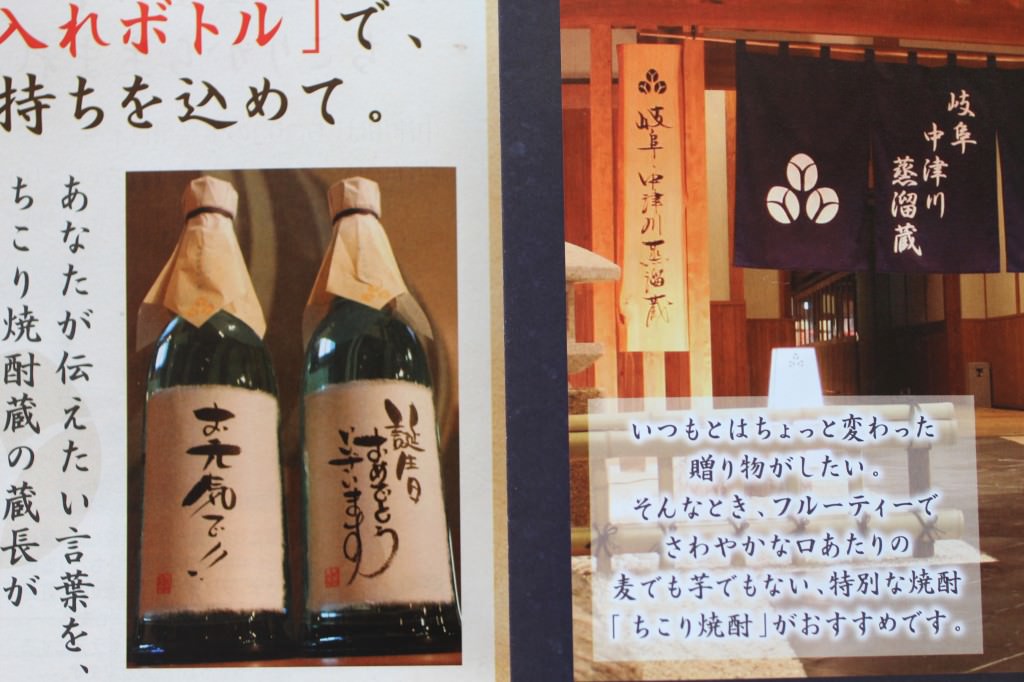 入れボトル」で、
持ちを込めて。
あなたが伝えたい言葉を、
ちこり焼酎蔵の蔵長が
お元気で!!
誕生日
おめでとう
ございます
岐阜・中津川蒸溜蔵
岐阜
中津川
蒸溜蔵
いつもとはちょっと変わった
贈り物がしたい。
そんなとき、フルーティーで
さわやかな口あたりの
麦でも芋でもない、特別な焼酎
「ちこり焼酎」がおすすめです。